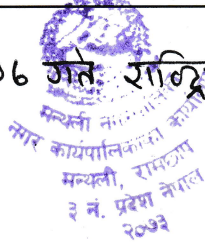 ०६ गते रात्रि
मन्थली न
नगर कार्यपालिकाको कार्या
मन्थली, रामेछाप
३ नं. प्रदेश नेपाल
२०७३